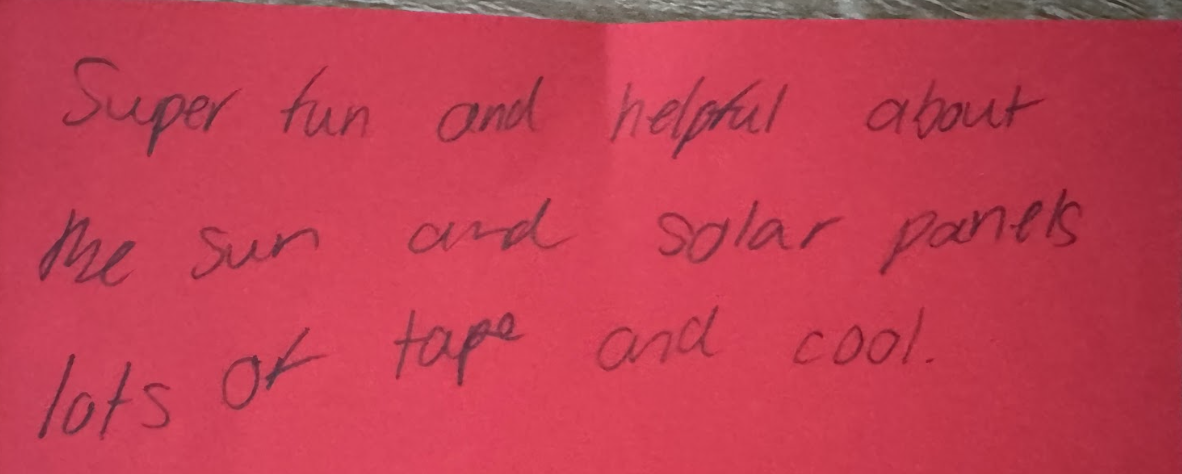 Super fun and helpful about
the sun and solar panels
lots of tape and cool.